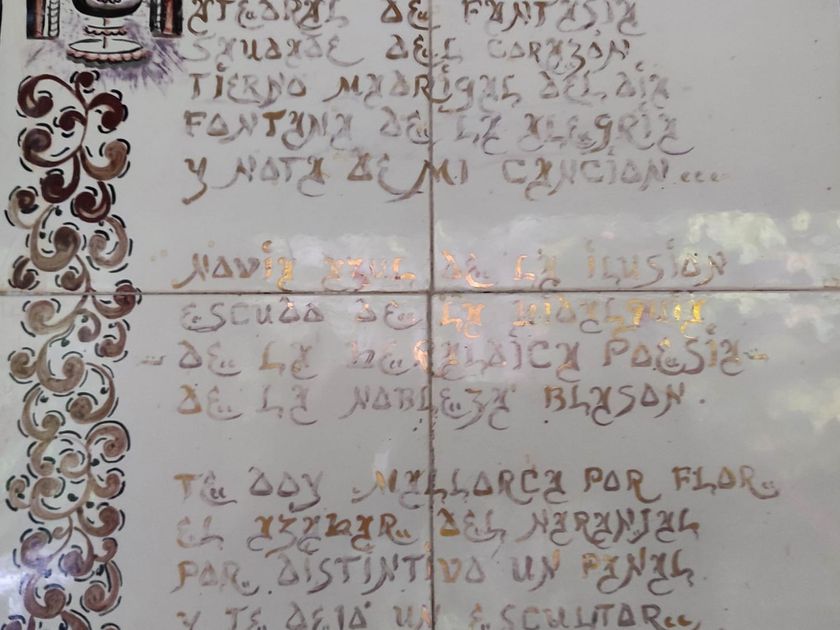 CATEDRAL DE FANTASIA
SAUDADE DEL CORAZÓN
TIERNO MADRIGAL DEL DÍA
FONTANA DE LA ALEGRÍA
Y NOTA DE MI CANCION...
NOVIA AZUL DE LA ILUSION
ESCUDO DE LA HIDALGUIA
- DE LA HERALDICA POESIA -
DE LA NOBLEZA BLASON.
TE DOY MALLORCA POR FLOR
EL AZAHAR DEL NARANJAL
POR DISTINTIVO UN PANAL
Y TE DEJO UN ESCULTOR